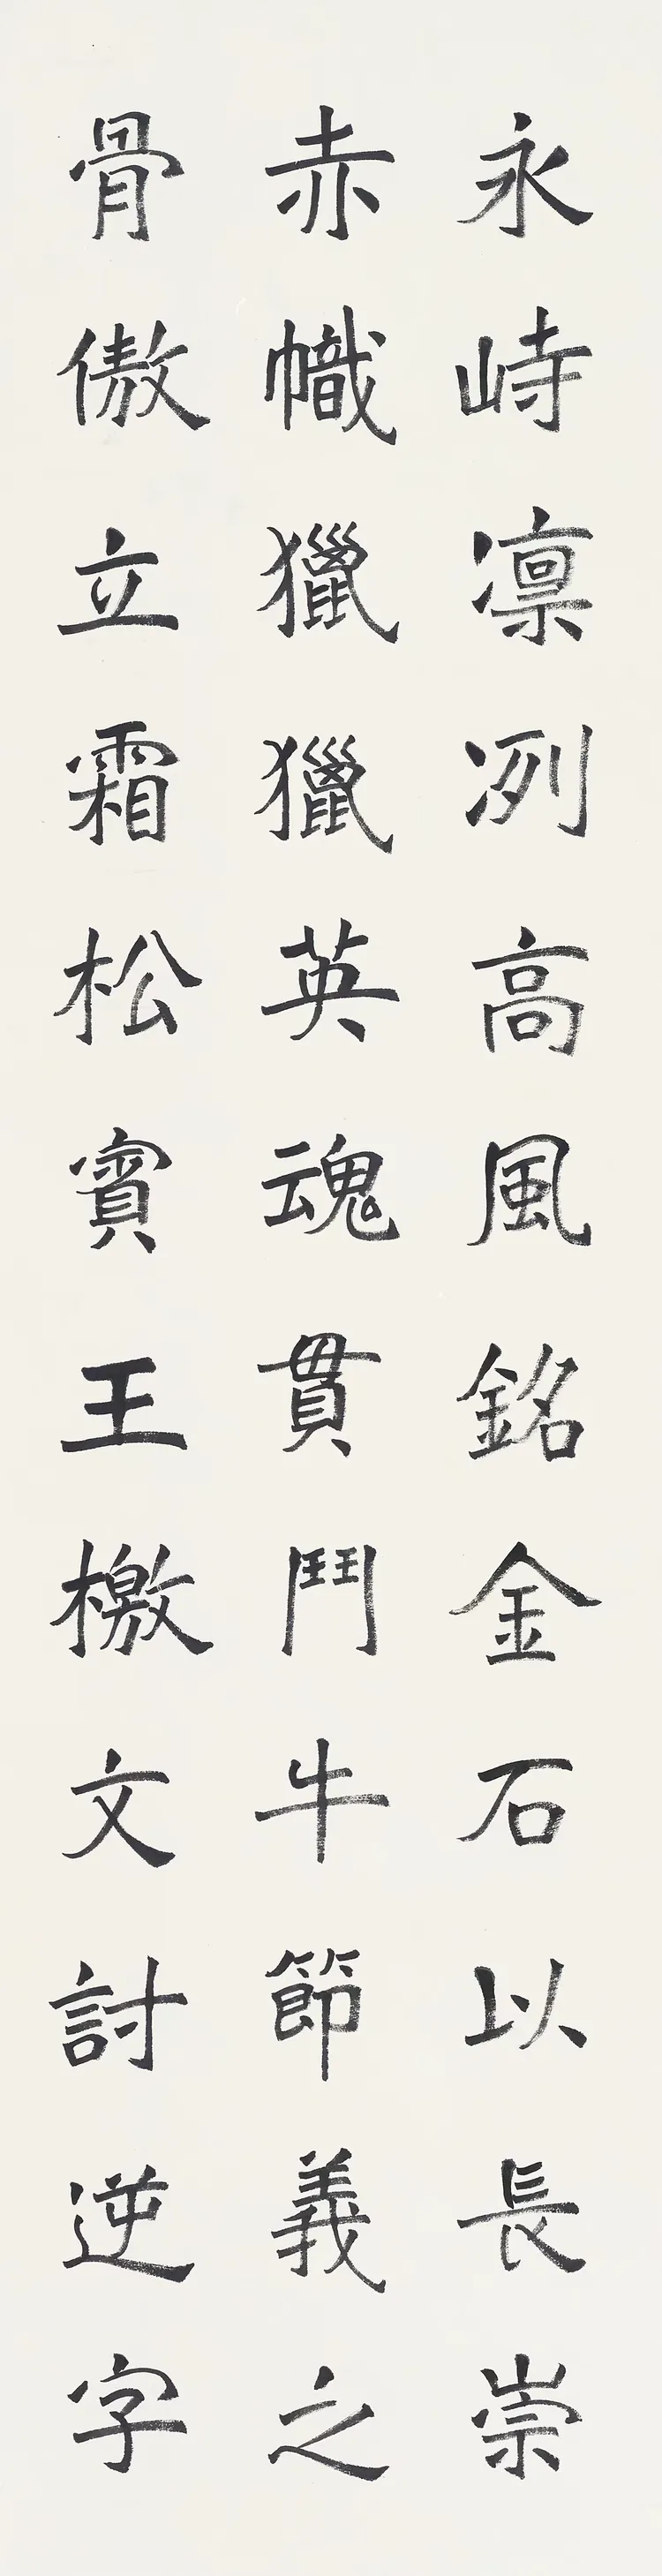 永峙凛冽高風銘金石以長崇
赤幟獵獵英魂貫鬥牛節義之
骨傲立霜松賓王檄文討逆字